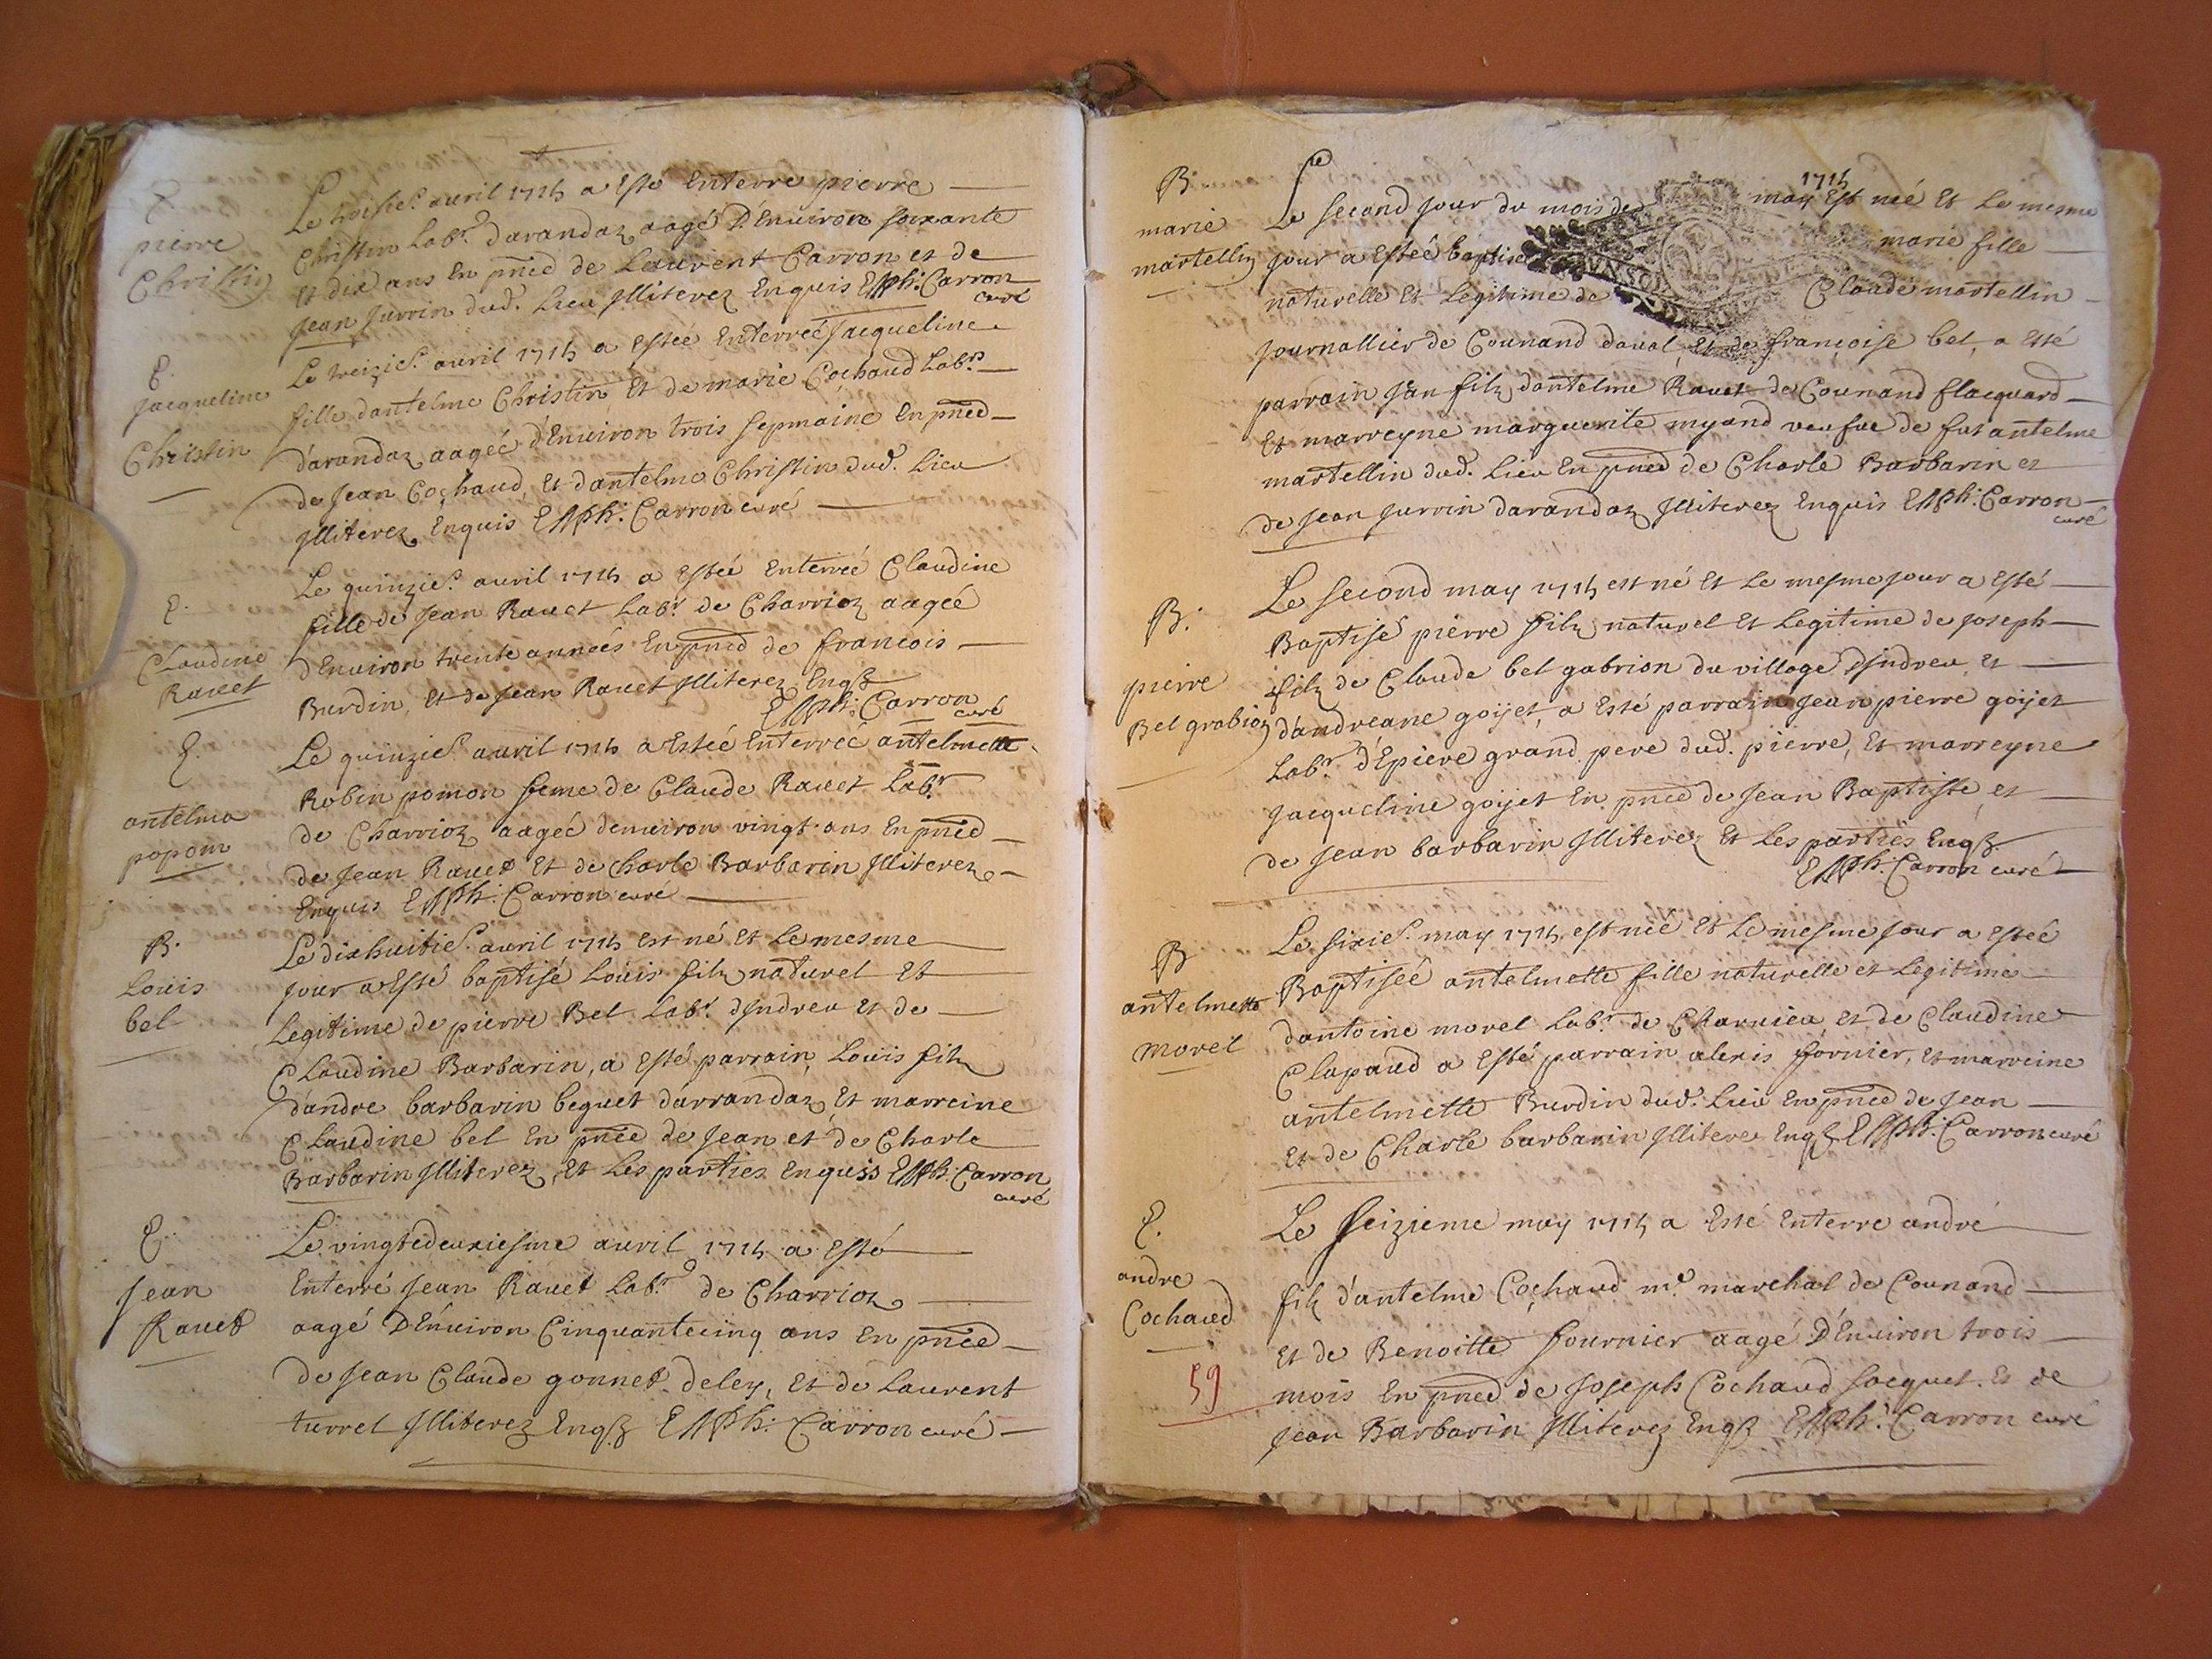 E
pierre
Christin
Le troisie. auril 1715 a esté enterré pierre
Christin labr. darandaz aagé d'Enuiron soixante
et dix ans en pnce de Laurent Carron et de
Jean Jurrin dud. lieu illiterez enquis Carron
curé
E.
Jacqueline
Christin
Le treizie. auril 1715 a estée enterrée Jacqueline
fille dantelme Christin et de marie Cochaud labrs
d'arandaz aagée d'Enuiron trois sepmaine en pnce
de Jean Cochaud, et dantelme Christin dud. lieu
illiterez enquis Carron curé
E.
Claudine
Rauet
Le quinzie. auril 1715 a estée enterrée Claudine
fille de Jean Rauet labr. de Charrioz aagée
d'Enuiron trente années en pnce de francois
Burdin, et de Jean Rauet illiterez Enqs
Carron
curé
E.
antelma
popom
Le quinzie. auril 1715 a estée enterrée antelmette
Robin pomon feme de Claude Rauet labr.
de Charrioz aagée denuiron vingt ans en pnce
de Jean Rauet et de Charle Barbarin illiterez
Enquis Carron curé
B.
Louis
bel
Le dixhuitie. auril 1715 est né et le mesme
jour a esté baptisé Louis filz naturel et
legitime de pierre Bel labr. d'Indreu et de
Claudine Barbarin, a esté parrain, Louis filz
d'andre barbarin beguet darrandaz et marreine
Claudine bel en pnce de Jean et de Charle
Barbarin illiterez, et les parties enquiss Carron
curé
E.
Jean
Rauet
Le vingtedeuxiesme auril 1715 a esté
Enterré Jean Rauet labr. de Charrioz
aagé d'Enuiron Cinquantecinq ans en pnce
de Jean Claude gonnet deley, et de Laurent
turrel illiterez Enqs Carron curé
B.
marie
martellin
1715
Le second jour du mois de may est née et le mesme
jour a estée baptisée marie fille
naturelle et legitime de Claude martellin
journallier de Counand daual, et de françoise bel, a esté
parrain Jan filz dantelme Rauet de Counand flacquard
et marreyne marguerite myand veufue de fut antelme
martellin dud. lieu en pnce de Charle Barbarin et
de Jean Jurrin darandaz illiterez enquis Carron
curé
B.
pierre
Bel grabioz
Le second may 1715 est né et le mesme jour a esté
Baptisé pierre filz naturel et legitime de joseph
filz de Claude bel gabrion du village d'Indreu, et
d'andreane goijet, a esté parrain Jean pierre goijet
labr. d'Epiere grand pere dud. pierre, et marreyne
Jacqueline goijet en pnce de Jean Baptiste et
de Jean barbarin illiterez et les parties Enqs
Carron curé
B
antelmette
morel
Le sixie. may 1715 est née et le mesme jour a estée
Baptisée antelmette fille naturelle et legitime
dantoine morel labr. de Charuieu, et de Claudine
Clapaud a esté parrain alexis fornier, et marreine
antelmette Burdin dud. lieu en pnce de Jean
et de Charle barbarin illiterez Enqs Carron curé
E.
andre
Cochaud
59
Le seizieme may 1715 a esté enterre andré
filz d'antelme Cochaud me. marchal de Counand
et de Benoitte fournier aagé d'Enuiron trois
mois en pnce de Joseph Cochaud Jacquet et de
Jean Barbarin illiterez Enqs Carron curé